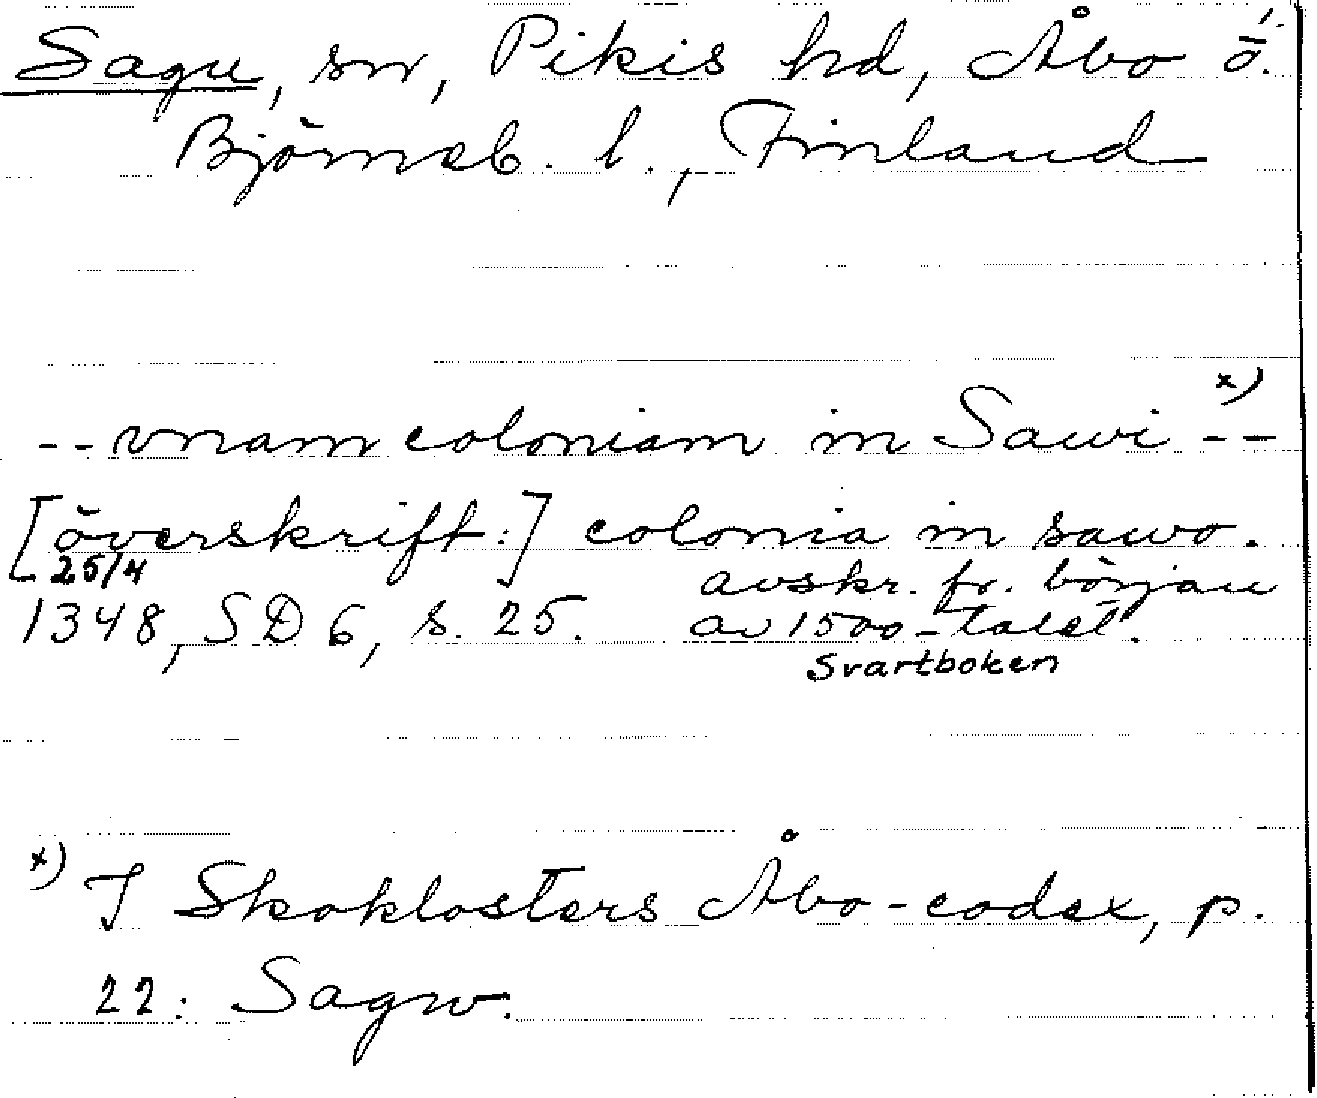 Sagu, sn, Pikis hd, Åbo o.
Björneb. l., Finland
-- vnam coloniam in Sawi x) --
[överskrift:] colonia in sawo.
25/4
1348, SD 6, s. 25. avskr. fr. början
av 1500-talet.
Svartboken
x) I Skoklosters Åbo-codex, p.
22: Sagw.